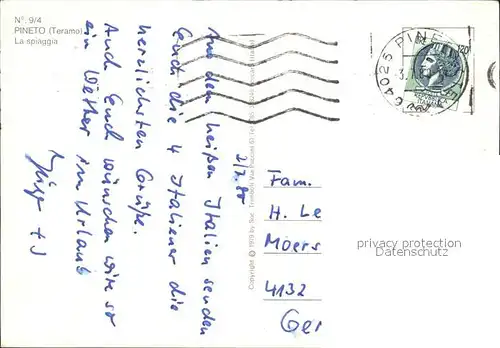 N°. 9/4
PINETO (Teramo)
La spiaggia
2/7.80
Aus dem heißen Italien senden
Euch die 4 Italiener die
herzlichsten Grüße.
Auch Euch wünschen wir so
ein Wetter im Urlaub
Fam.
H. Le
Moers
4132
Ger
64025 PINETO
privacy protection
Datenschutz